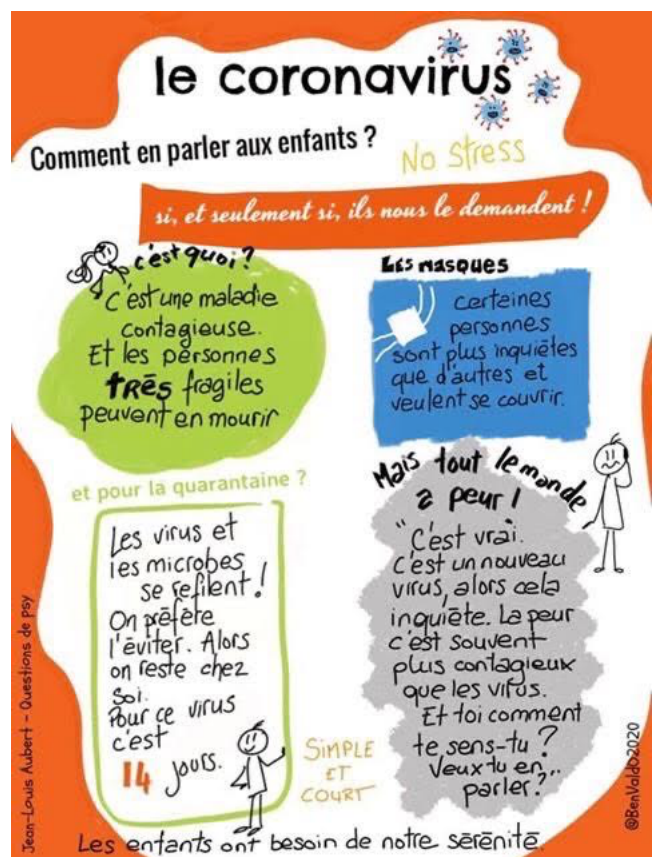 le coronavirus
Comment en parler aux enfants ?
No stress
si, et seulement si, ils nous le demandent !
c'est quoi ?
C'est une maladie
contagieuse.
Et les personnes
TRÈS fragiles
peuvent en mourir
Les masques
certeines
personnes
sont plus inquiètes
que d'autres et
veulent se couvrir.
et pour la quarantaine ?
Les virus et
les microbes
se refilent !
On préfère
l'éviter. Alors
on reste chez
soi.
Pour ce virus
c'est
14 jours.
Mais tout le monde
a peur !
"C'est vrai.
C'est un nouveau
virus, alors cela
inquiète. La peur
c'est souvent
plus contagieux
que les virus.
Et toi comment
te sens-tu ?
Veux tu en...
parler ?
SIMPLE
ET
COURT
Les enfants ont besoin de notre sérénité.
Jean-Louis Aubert - Questions de psy
@BenValdO2020